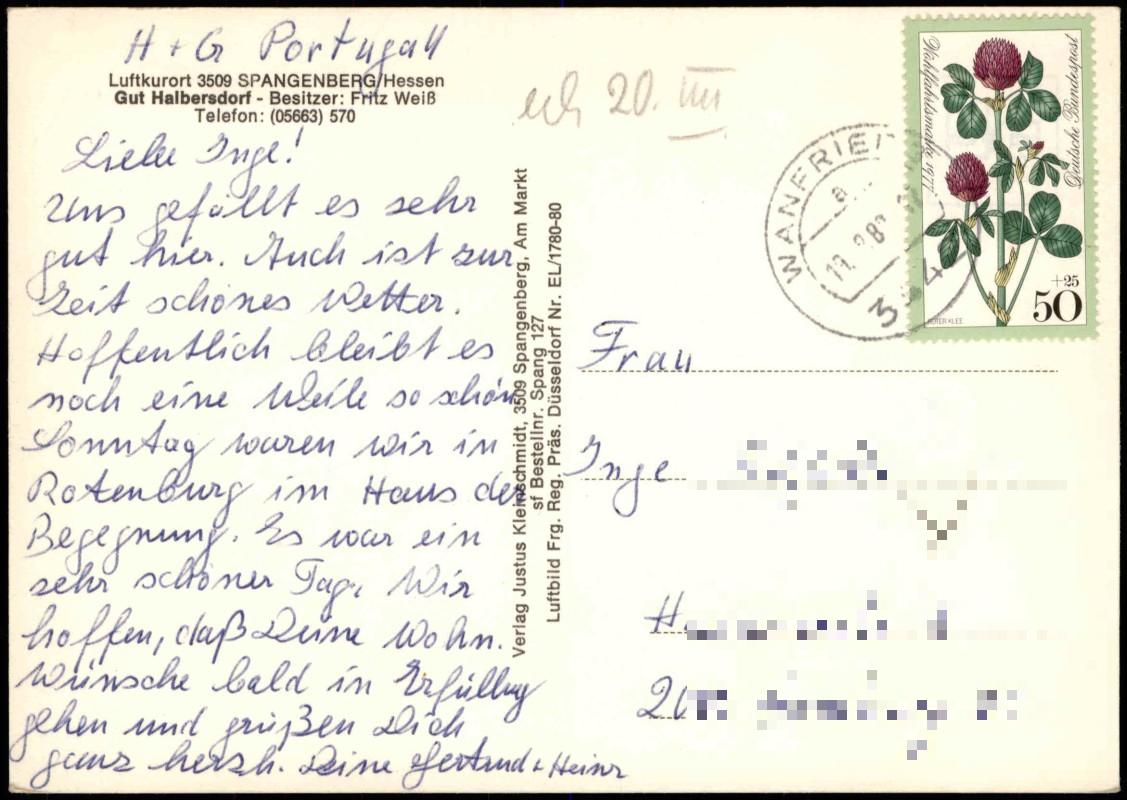 H + G Portugall
Luftkurort 3509 SPANGENBERG/Hessen
Gut Halbersdorf - Besitzer: Fritz Weiß
Telefon: (05663) 570
Liebe Inge!
Uns gefällt es sehr
gut hier. Auch ist zur
Zeit schönes Wetter.
Hoffentlich bleibt es
noch eine Weile so schön
Sonntag waren wir in
Rotenburg im Haus der
Begegnung. Es war ein
sehr schöner Tag. Wir
hoffen, daß Deine Wohn.
Wünsche bald in Erfüllug
gehen und grüßen Dich
ganz herzh. Deine Gertrud + Heinr
Verlag Justus Kleinschmidt, 3509 Spangenberg, Am Markt
sf Bestellnr. Spang 127
Luftbild Frg. Reg. Präs. Düsseldorf Nr. EL/1780-80
20. VIII
WANFRIED
Wohlfahrtsmarke 1977
Deutsche Bundespost
+25
50
ROTER KLEE
Frau
Inge
H
20